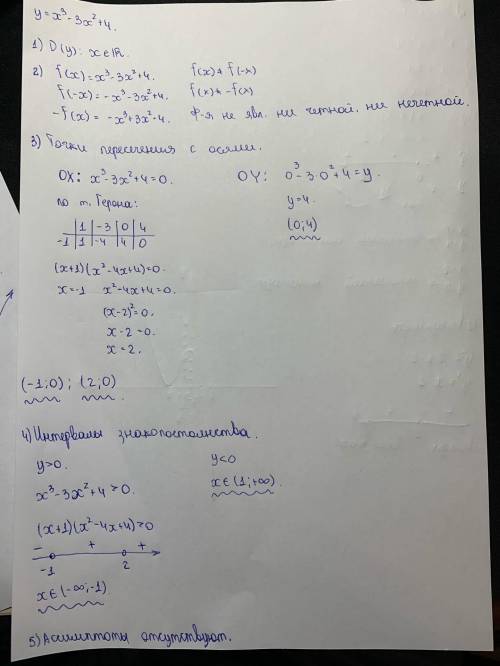 y=x³-3x²+4.
1) D(y): x∈ℝ.
2) f(x)=x³-3x²+4. f(x)≠f(-x)
f(-x)=-x³-3x²+4. f(x)≠-f(x)
-f(x)=-x³+3x²-4. Ф-я не явл. ни четной, ни нечетной.
3) Точки пересечения с осями.
OX: x³-3x²+4=0. OY: 0³-3·0²+4=y.
по т. Герона: y=4.
1 | -3 | 0 | 4 (0;4)
-1 | 1 | -4 | 4 | 0
(x+1)(x²-4x+4)=0.
x=-1 x²-4x+4=0.
(x-2)²=0.
x-2=0.
x=2.
(-1;0); (2;0)
4) Интервалы знакопостоянства.
y>0. y<0
x³-3x²+4>0. x∈(1;+∞).
(x+1)(x²-4x+4)>0
- + +
-1 2
x∈(-∞;-1)
5) Ассимптоты отсутствуют.